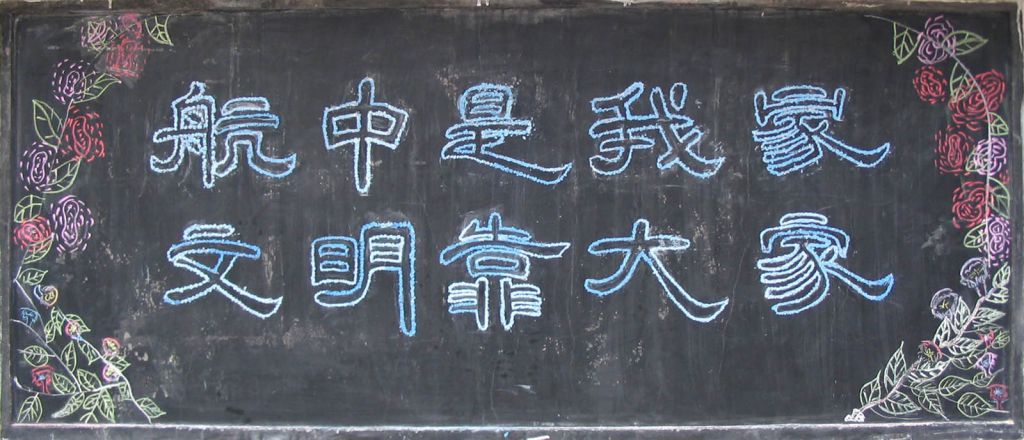 航中是我家
文明靠大家